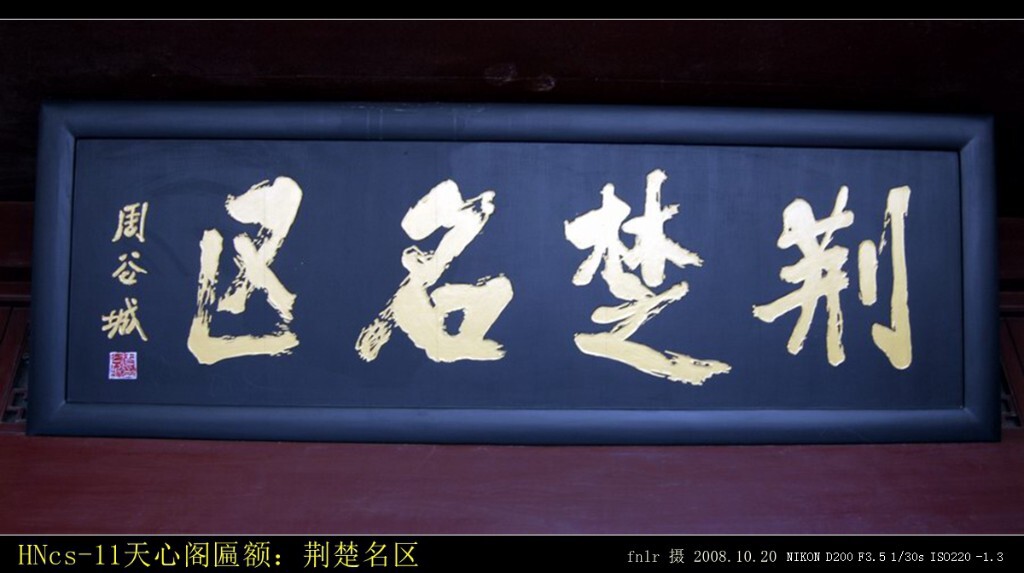 荆楚名区
周谷城
HNcs-11天心阁匾额：荆楚名区
fnlr 摄 2008.10.20 NIKON D200 F3.5 1/30s ISO220 -1.3